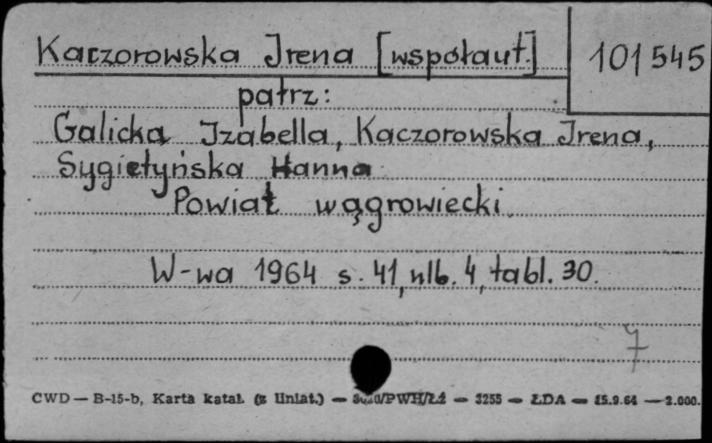 Kaczorowska Irena [współaut.] 101545
patrz:
Galicka Izabella, Kaczorowska Irena,
Sygietyńska Hanna
Powiat wągrowiecki.
W-wa 1964 s. 41, nlb. 4, tabl. 30.
7
CWD — B-15-b, Karta katal. (z liniat.) — /PWH/Łź — 3255 — ŁDA — 15.9.64 — 2.000.